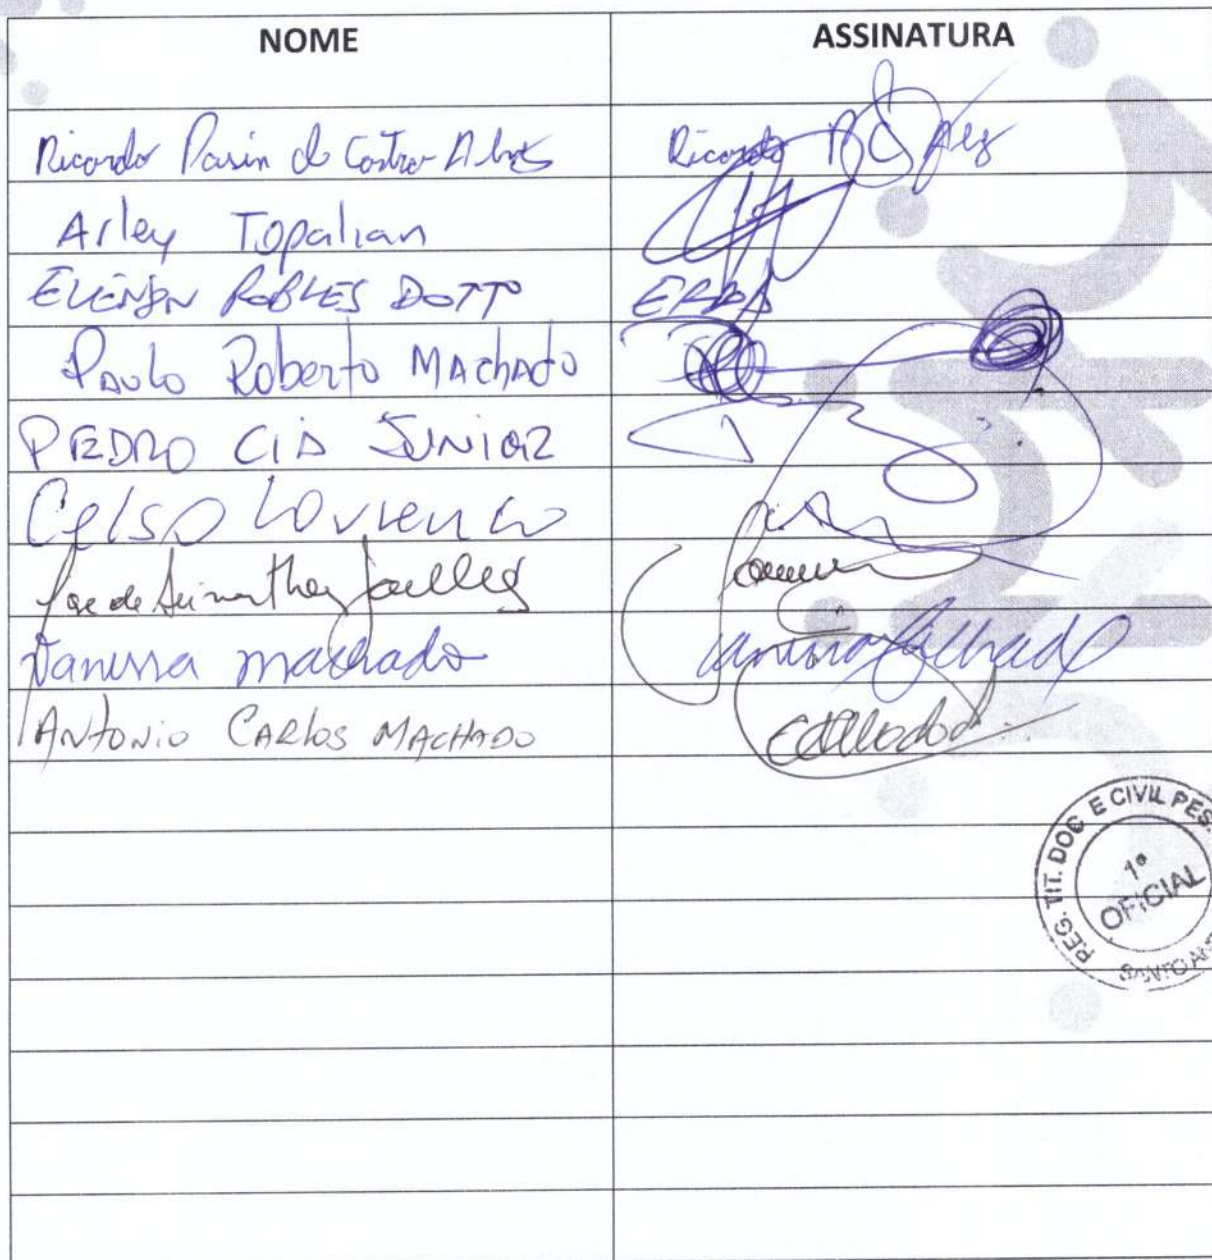 NOME ASSINATURA
Ricardo Pasin de Castro Alves Ricardo P C Alves
Arley Topalian
ROBLES DOTTO ERDA
Paulo Roberto Machado
PEDRO CID JUNIOR
Celso Lourenço
José de
Vanessa machado Vanessa Machado
ANTONIO CARLOS MACHADO
REG. TIT. DOC E CIVIL PES.
1º
OFICIAL
SANTO AND